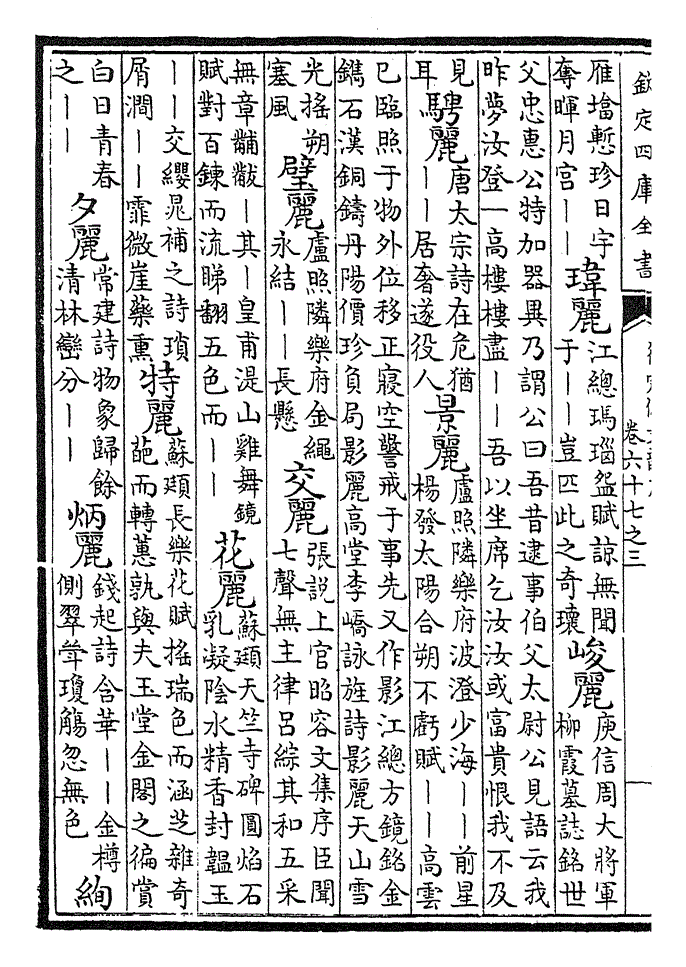 欽定四庫全書
卷六十七之三
雁壋慙珍日宇
奪暉月宮——
瑋麗
江總瑪瑙盌賦諒無聞
于——豈匹此之奇瓌
峻麗
庾信周大將軍
柳霞墓誌銘世
父忠惠公特加器異乃謂公曰吾昔逮事伯父太尉公見語云我
昨夢汝登一高樓樓盡——吾以坐席乞汝汝或富貴恨我不及
見
耳
騁麗
唐太宗詩在危猶
——居奢遂役人
景麗
盧照隣樂府波澄少海——前星
楊發太陽合朔不虧賦——高雲
已臨照于物外位移正寢空警戒于事先又作影江總方鏡銘金
鐫石漢銅鑄丹陽價珍負局影麗高堂李嶠詠旌詩影麗天山雪
光搖朔
塞風
璧麗
盧照隣樂府金繩
永結——長懸
交麗
張說上官昭容文集序臣聞
七聲無主律呂綜其和五采
無章黼黻——其——皇甫湜山雞舞鏡
賦對百鍊而流睇翻五色而——
花麗
蘇頲天竺寺碑圓焰石
乳凝陰水精香封韞玉
——交纓晁補之詩瑣
屑澗——霏微崖藥熏
特麗
蘇頲長樂花賦搖瑞色而涵芝雜奇
葩而轉蕙孰與夫玉堂金閣之徧賞
白日青春
之——
夕麗
常建詩物象歸餘
清林巒分——
炳麗
錢起詩含華——金樽
側翠斝瓊觴忽無色
絢